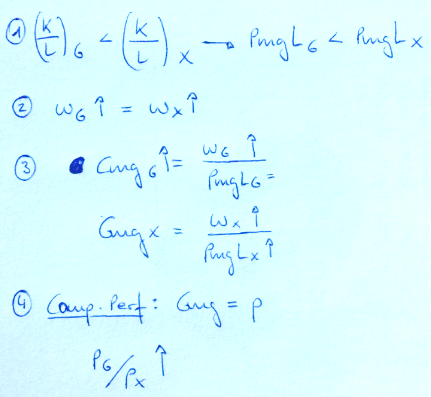 ① (K/L)G < (K/L)X → PmgLG < PmgLX
② wG ↑ = wX ↑
③ CmgG ↑ = wG ↑ / PmgLG =
CmgX = wX ↑ / PmgLX ↑
④ Comp. Perf: Cmg = p
PG/PX ↑